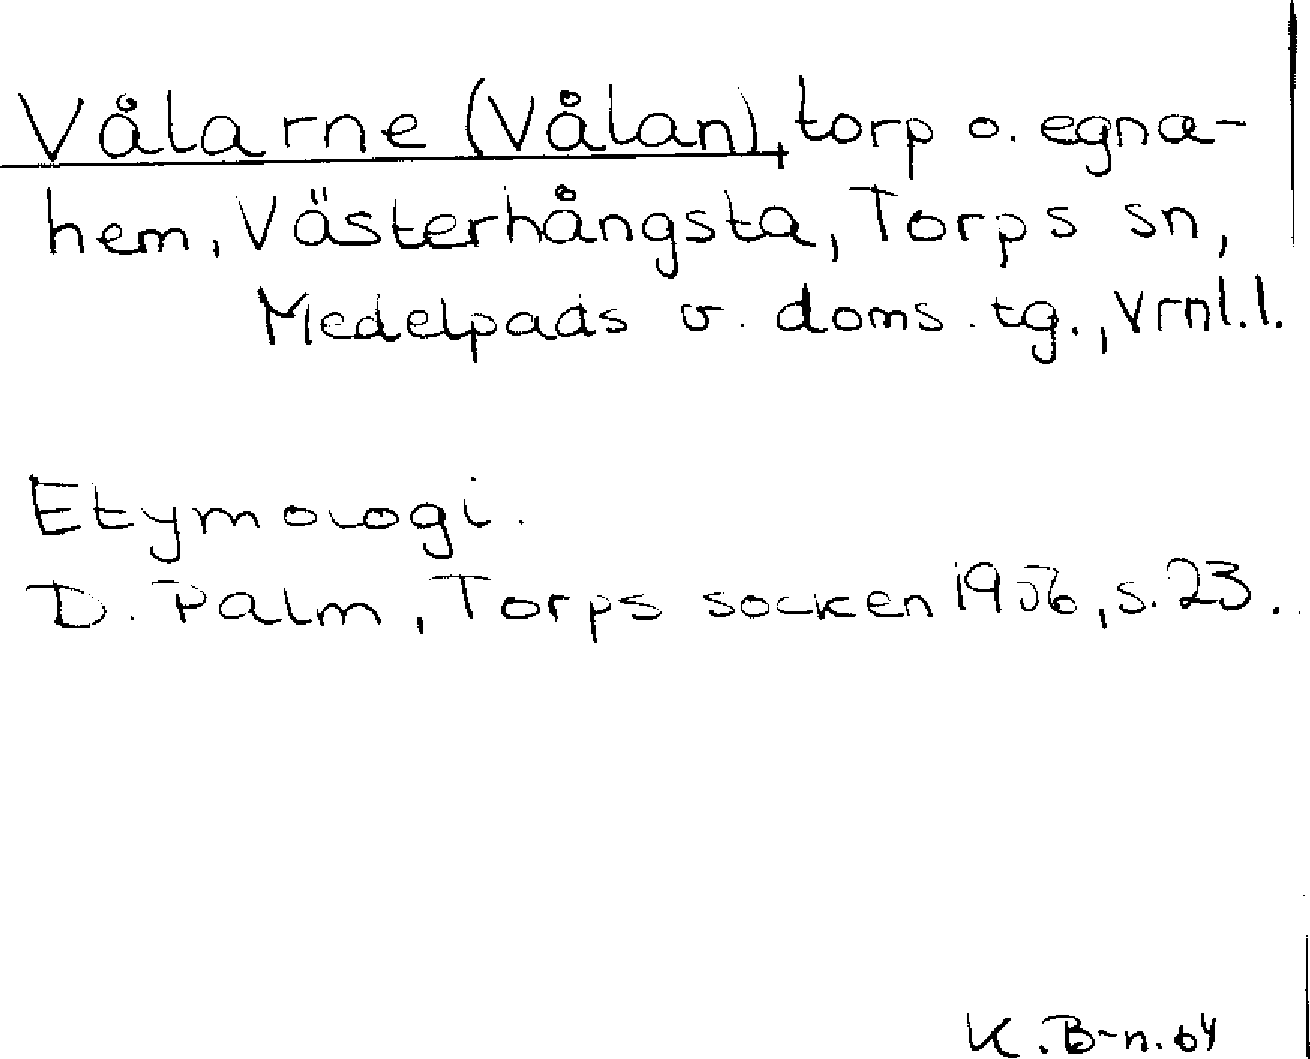 Vålarne (Vålan), torp o. egna-
hem, Västerhångsta, Torps sn,
Medelpads v. doms. tg., Vrnl.l.
Etymologi.
D. Palm, Torps socken 1956, s. 23.
K. B-n. 64